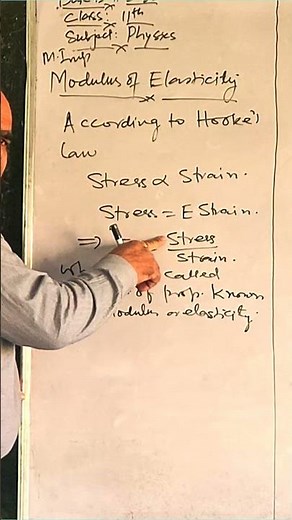 Class: 11th
Subject: Physics
M. Imp
Modulus of Elasticity
According to Hooke's
law
Stress ∝ Strain.
Stress = E Strain.
⇒ Stress
Strain.
called
of prop. Known
modulus or elasticity.